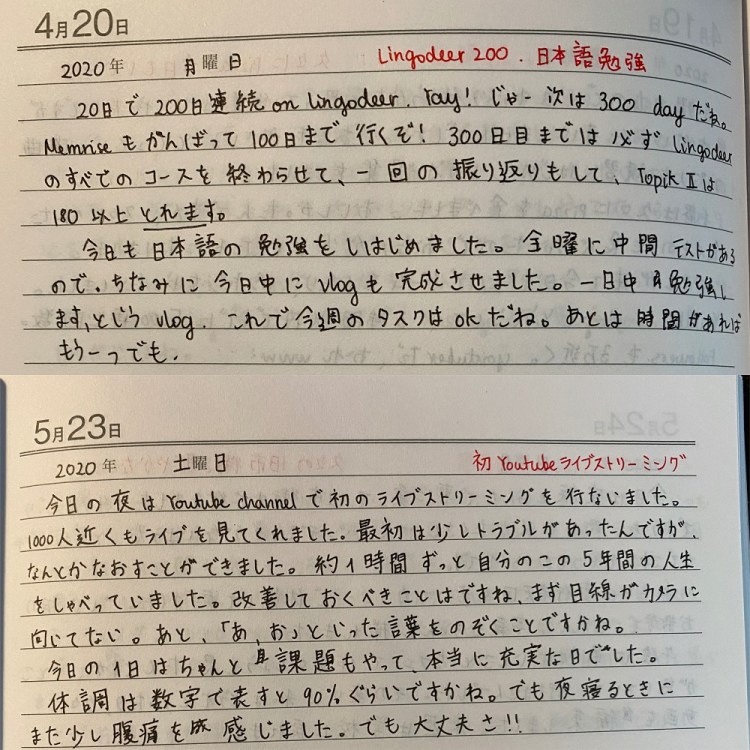 4月20日
2020年 月曜日 Lingodeer 200. 日本語勉強
20日で200日連続 on lingodeer. Yay! じゃー次は300 dayだね。
Memriseもがんばって100日まで行くぞ! 300日目までは必ずLingodeer
のすべてのコースを終わらせて、一回の振り返りもして、Topik IIは
180以上とれます。
今日も日本語の勉強をしはじめました。金曜に中間テストがある
ので。ちなみに今日中にvlogも完成させました。一日中勉強し
ます、というvlog. これで今週のタスクはokだね。あとは時間があれば
もう一つでも.
5月23日
2020年 土曜日 初Youtubeライブストリーミング
今日の夜はYoutube channelで初のライブストリーミングを行ないました。
1000人近くもライブを見てくれました。最初は少しトラブルがあったんですが、
なんとかなおすことができました。約1時間ずっと自分のこの5年間の人生
をしゃべっていました。改善しておくべきことはですね、まず目線がカメラに
向じてない。あと、「あ、お」といった言葉をのぞくことですかね。
今日の1日はちゃんと課題もやって、本当に充実な日でした。
体調は数字で表すと90%ぐらいですかね。でも夜寝るときに
また少し腹痛を感じました。でも大丈夫さ!!